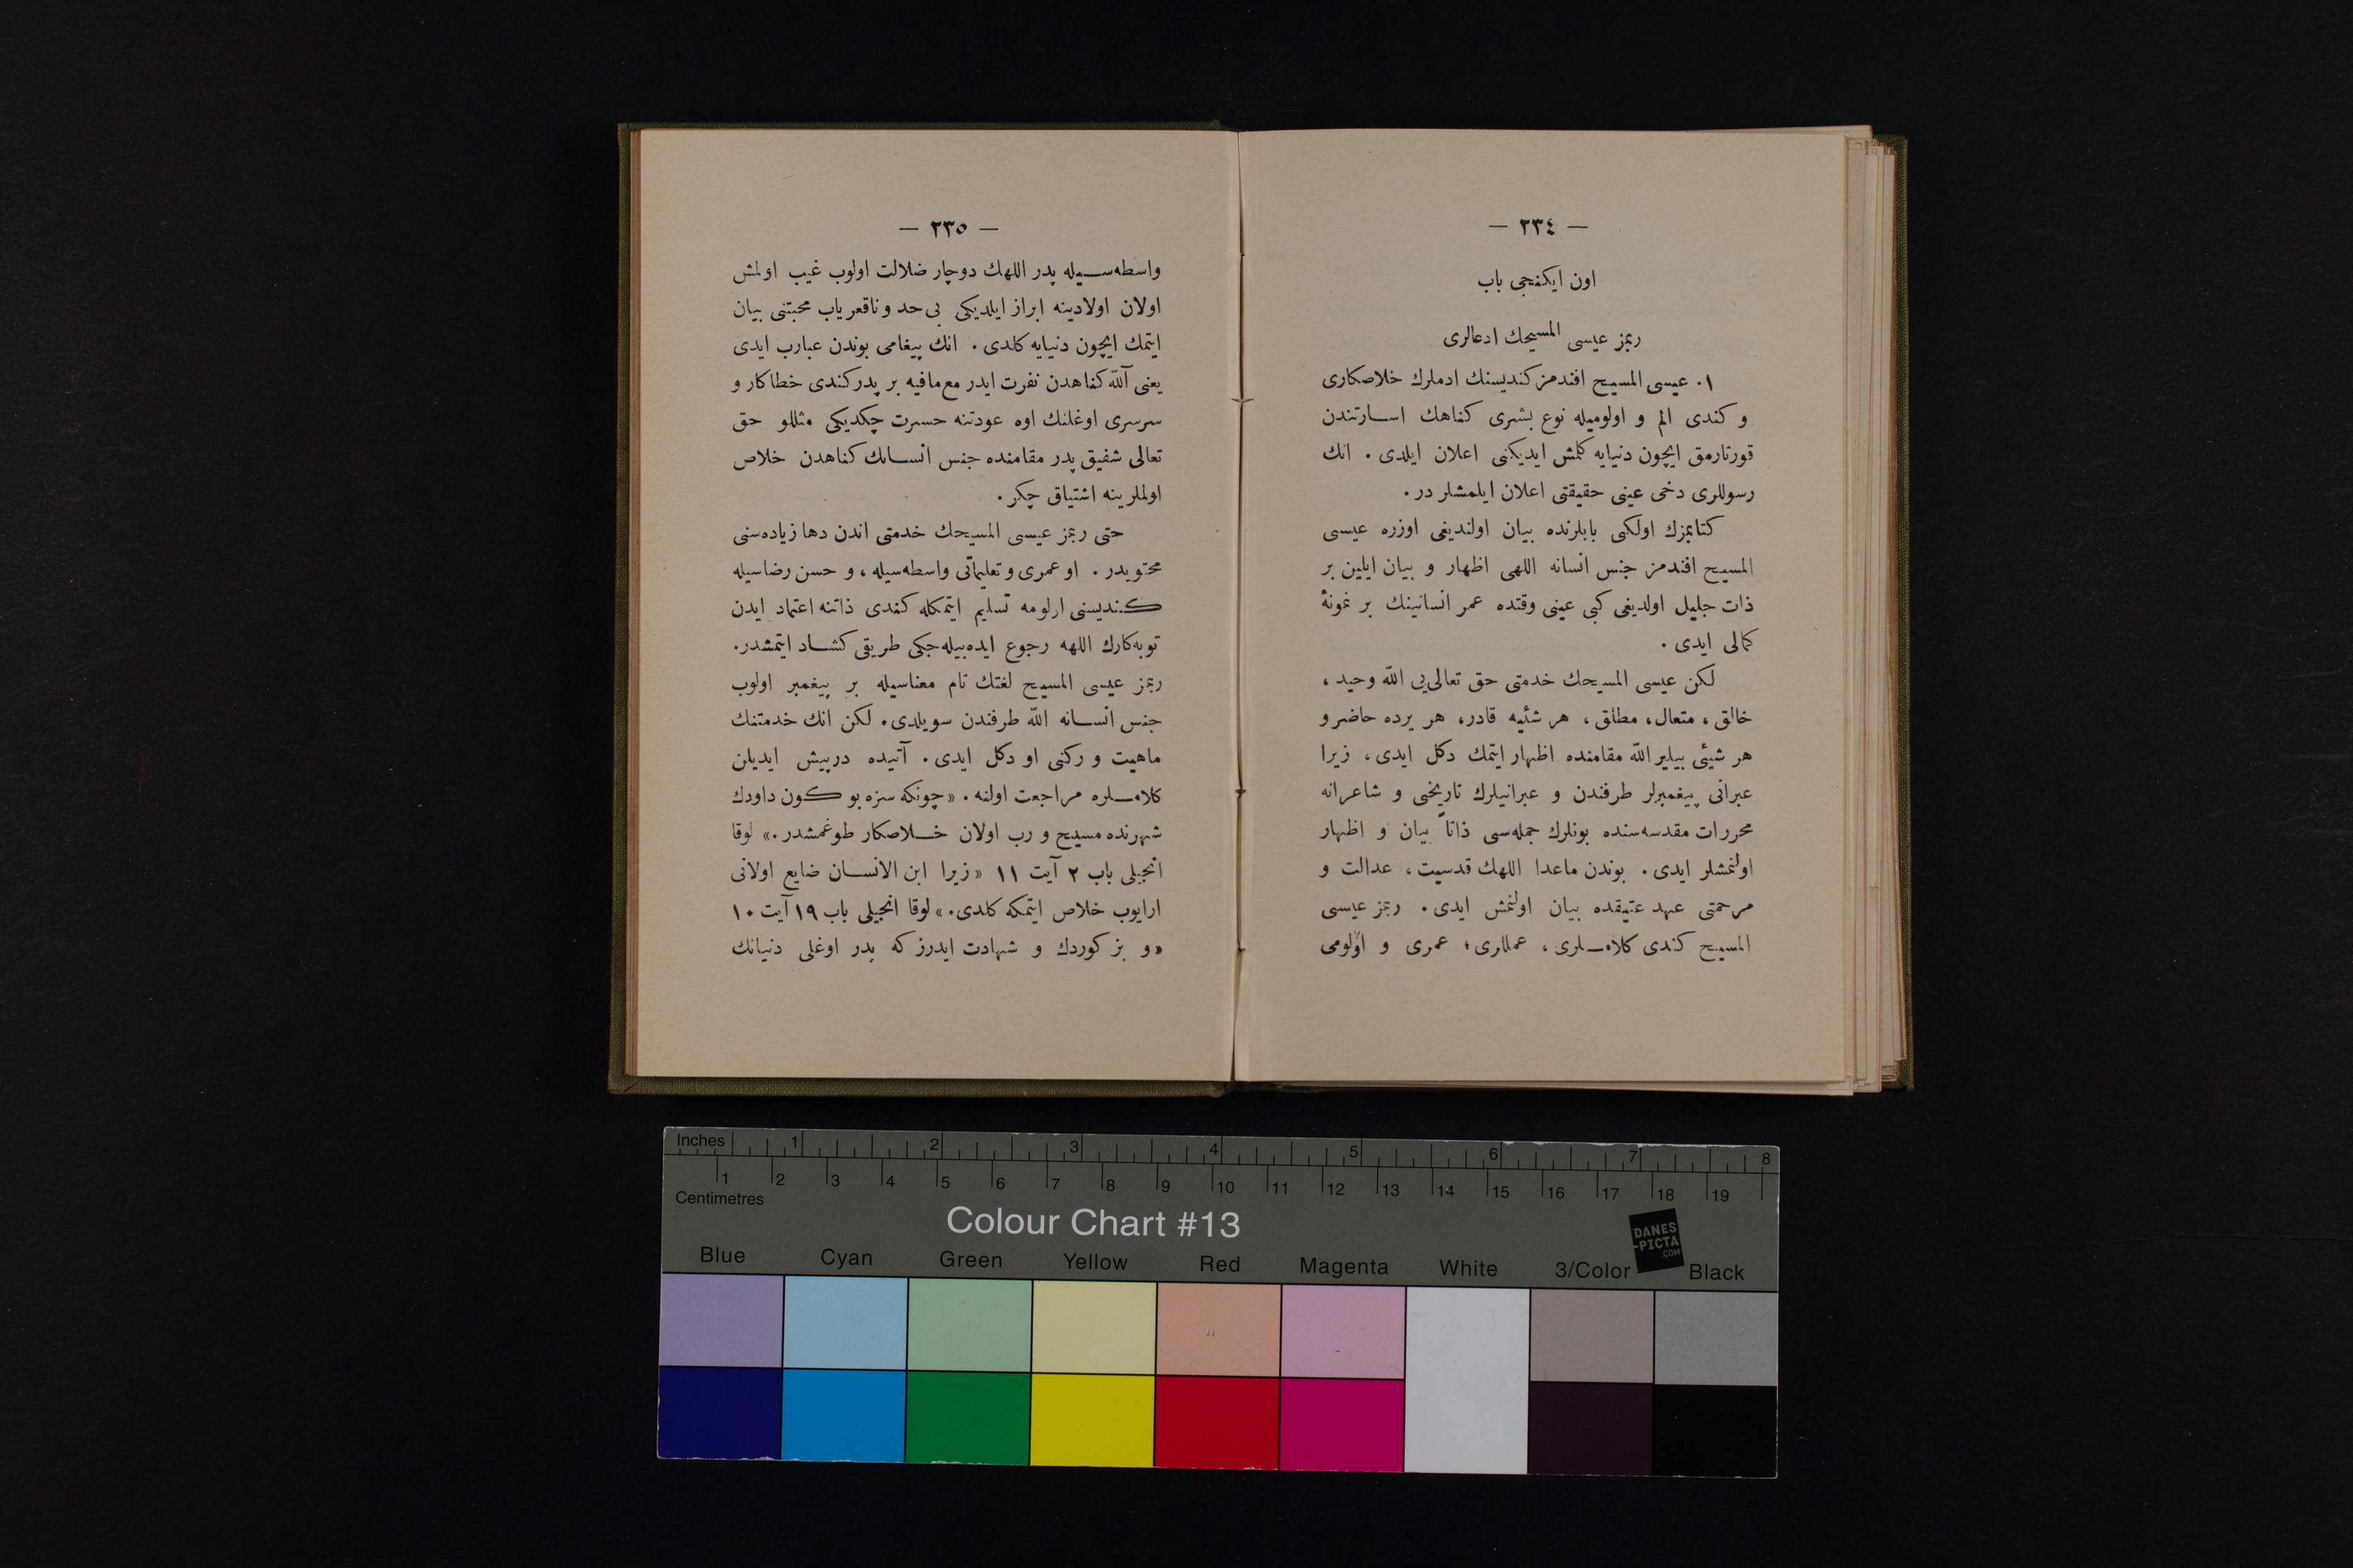 — ٢٣٤ —
اون ایكنجی باب
ربمز عیسی المسیحك ادعالری
١. عیسی المسیح افندمز كندیسنك ادملرك خلاصكاری
و كندی الم و اولومیله نوع بشری كناهك اسارتندن
قورتارمق ایچون دنیایه كلمش ایدیكنی اعلان ایلدی . انك
رسوللری دخی عینی حقیقتی اعلان ایلمشلر در .
كتابمزك اولكی بابلرنده بیان اولندیغی اوزره عیسی
المسیح افندمز جنس انسانه اللهی اظهار و بیان ایلین بر
ذات جلیل اولدیغی كبی عینی وقتده عمر انسانینك بر نمونهٔ
كمالی ایدی .
لكن عیسی المسیحك خدمتی حق تعالی‌یی اللّه وحید ،
خالق ، متعال ، مطلق ، هر شئیه قادر ، هر یرده حاضر و
هر شیئی بیلیر اللّه مقامنده اظهار ایتمك دكل ایدی ، زیرا
عبرانی پیغمبرلر طرفندن و عبرانیلرك تاریخی و شاعرانه
محررات مقدسه‌سنده بونلرك جمله‌سی ذاتاً بیان و اظهار
اولنمشلر ایدی . بوندن ماعدا اللهك قدسیت ، عدالت و
مرحمتی عهد عتیقده بیان اولنمش ایدی . ربمز عیسی
المسیح كندی كلامـلری ، عمللری ؛ عمری و اولومی
— ٢٣٥ —
واسطه‌سـیله پدر اللهك دوچار ضلالت اولوب غیب اولمش
اولان اولادینه ابراز ایلدیكی بی‌حد و ناقعریاب محبتنی بیان
ایتمك ایچون دنیایه كلدی . انك پیغامی بوندن عبارب ایدی
یعنی آللّه كناهدن نفرت ایدر مع‌مافیه بر پدر كندی خطاكار و
سرسری اوغلنك اوه عودتنه حسرت چكدیكی مثللو حق
تعالی شفیق پدر مقامنده جنس انسـانك كناهدن خلاص
اولملرینه اشتیاق چكر .
حتی ربمز عیسی المسیحك خدمتی اندن دها زیاده‌سنی
محتویدر . او عمری و تعلیماتی واسطه‌سیله ، و حسن رضاسیله
كندیسنی ارلومه تسلیم ایتمكله كندی ذاتنه اعتماد ایدن
توبه‌كارك اللهه رجوع ایده‌بیله‌جكی طریقی كشـاد ایتمشدر.
ربمز عیسی المسیح لغتك تام معناسیله بر پیغمبر اولوب
جنس انسـانه اللّه طرفندن سویلدی . لكن انك خدمتنك
ماهیت و ركنی او دكل ایدی . آتیده درپیش ایدیلن
كلامـلره مراجعت اولنه . «چونكه سزه بو كون داودك
شهرنده مسیح و رب اولان خـلاصكار طوغمشدر .» لوقا
انجیلی باب ٢ آیت ١١ «زیرا ابن الانسـان ضایع اولانی
ارایوب خلاص ایتمكه كلدی .» لوقا انجیلی باب ١٩ آیت ١٠
«و بز كوردك و شهادت ایدرز كه پدر اوغلی دنیانك
Inches 1 2 3 4 5 6 7 8
1 2 3 4 5 6 7 8 9 10 11 12 13 14 15 16 17 18 19
Centimetres
Colour Chart #13
DANES
-PICTA
.COM
Blue Cyan Green Yellow Red Magenta White 3/Color Black